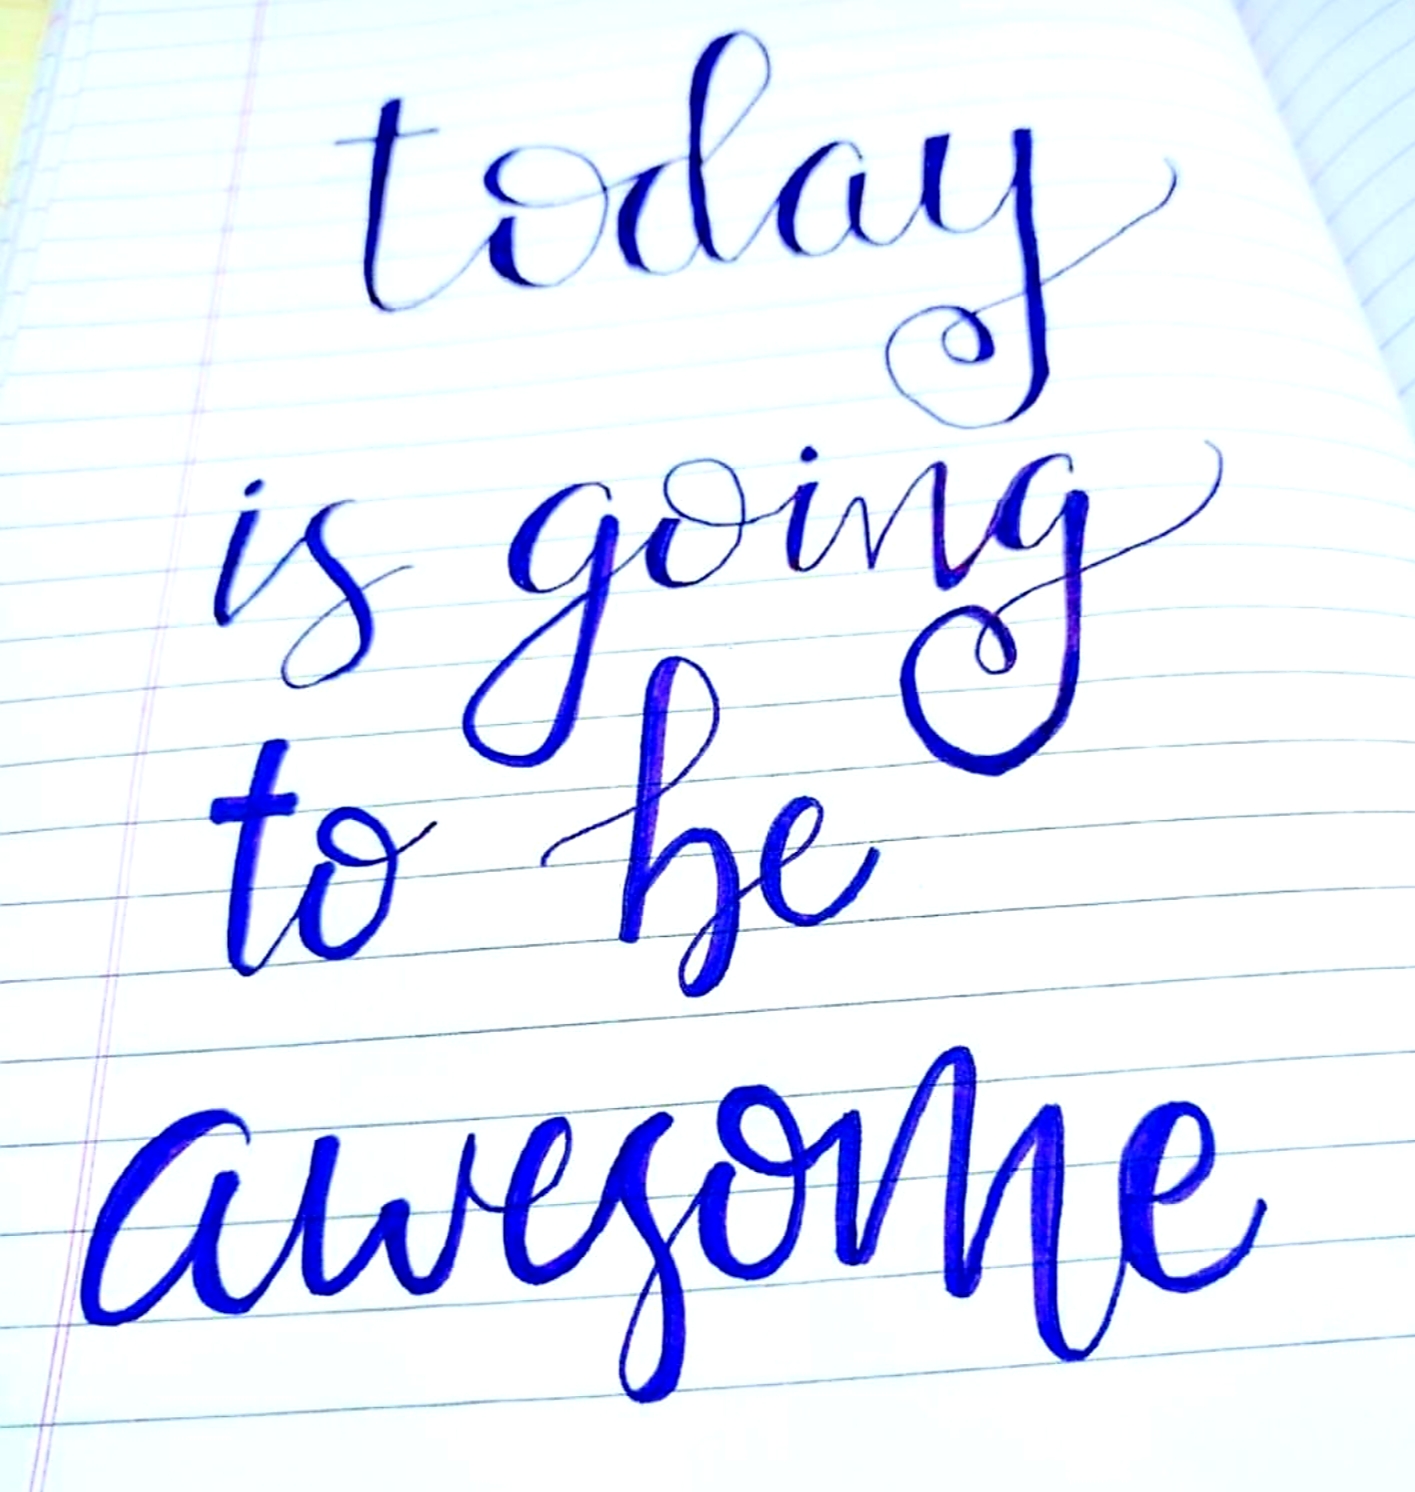 today
is going
to be
awesome